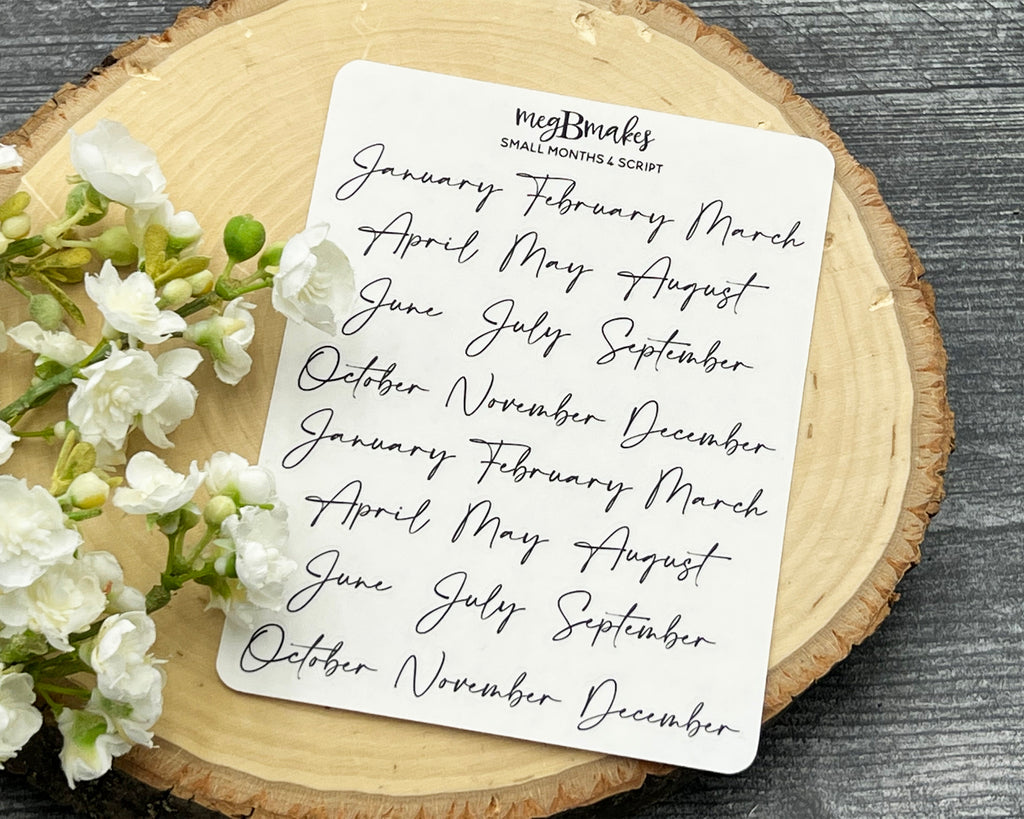 megBmakes
SMALL MONTHS & SCRIPT
January February March
April May August
June July September
October November December
January February March
April May August
June July September
October November December